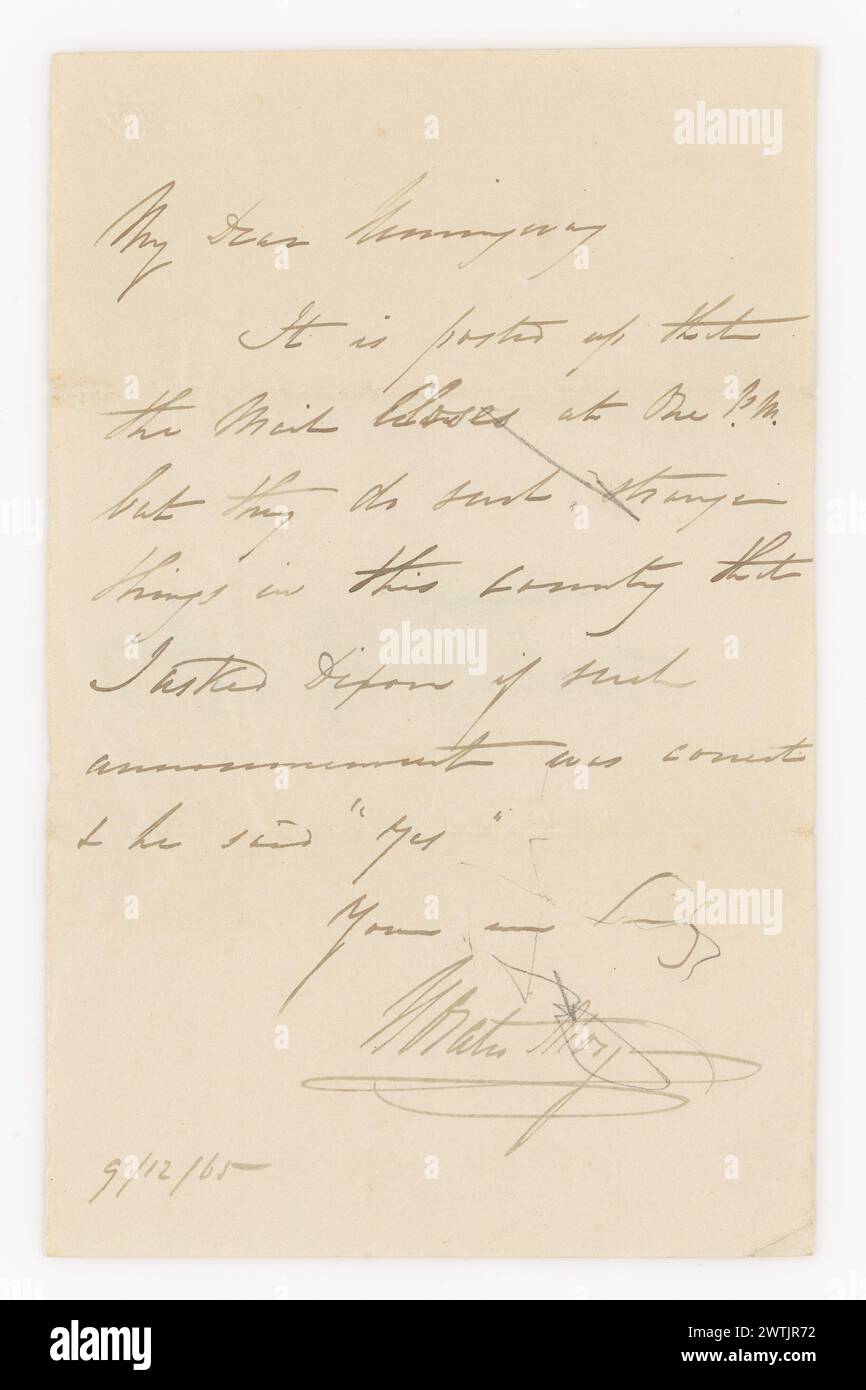 My Dear Hemingway
It is posted up that
the Mail Closes at One P.M.
but they do such strange
things in this country that
I asked Dixon if such
announcement was correct
& he said "Yes"
Yours
9/12/65
alamy
a
alamy
www.alamy.com
Image ID: 2WTJR72